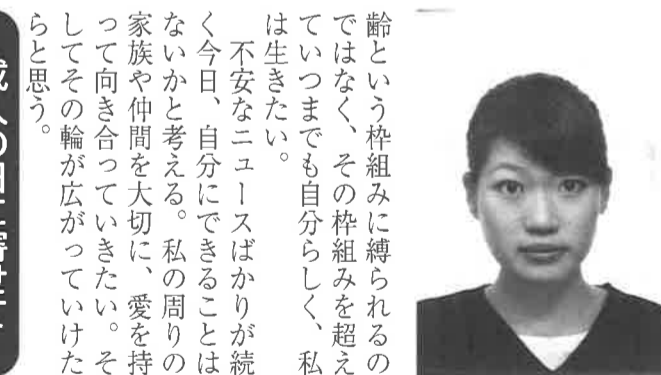 齢という枠組みに縛られるの
ではなく、その枠組みを超え
ていつまでも自分らしく、私
は生きたい。
不安なニュースばかりが続
く今日、自分にできることは
ないかと考える。私の周りの
家族や仲間を大切に、愛を持
って向き合っていきたい。そ
してその輪が広がっていけた
らと思う。
人の日に寄せて